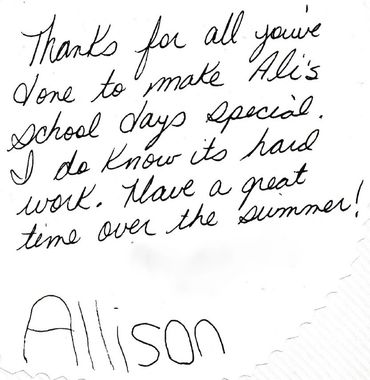 Thanks for all you've
done to make Ali's
school days special.
I do know its hard
work. Have a great
time over the summer!
Allison